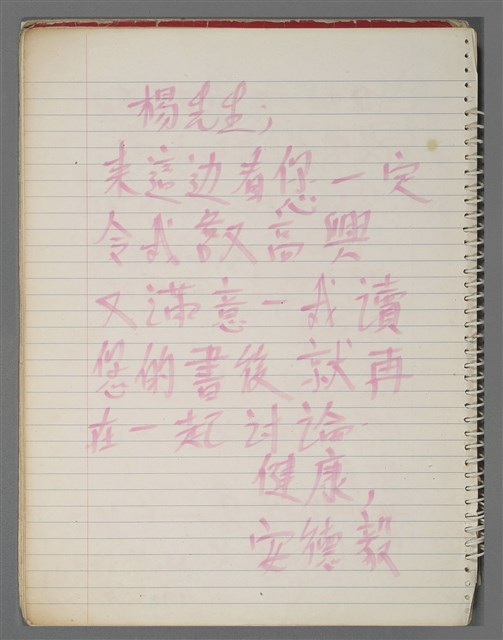 楊先生;
来這边看您一定
令我敬高興
又滿意一我讀
您的書後就再
在一起討論.
健康,
安德毅